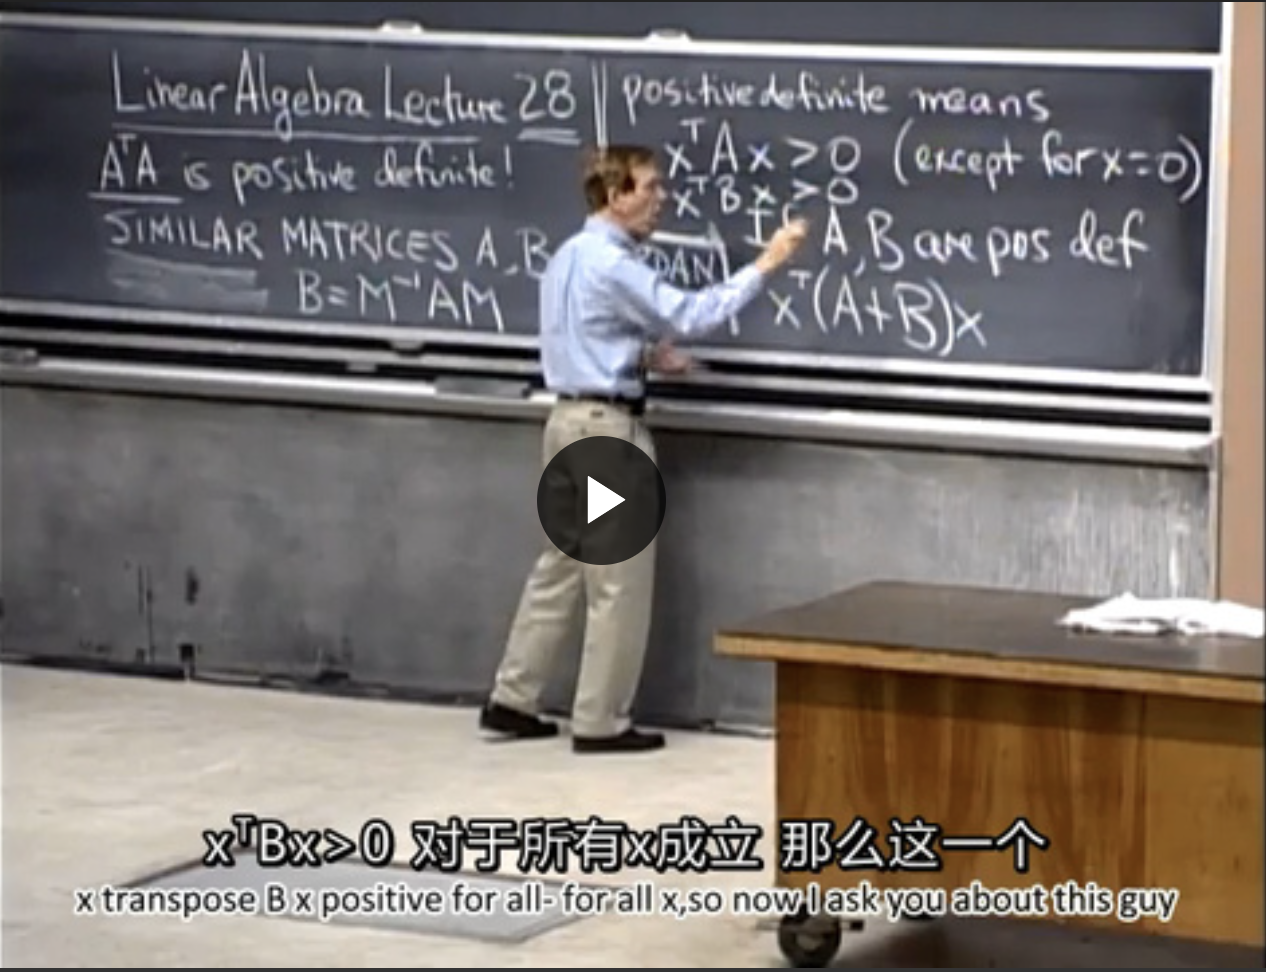 Linear Algebra Lecture 28
AᵀA is positive definite!
SIMILAR MATRICES A, B
B = M⁻¹AM
positive definite means
xᵀAx > 0 (except for x = 0)
xᵀBx > 0
If A, B are pos def
xᵀ(A+B)x
xᵀBx>0 对于所有x成立 那么这一个
x transpose B x positive for all- for all x,so now I ask you about this guy